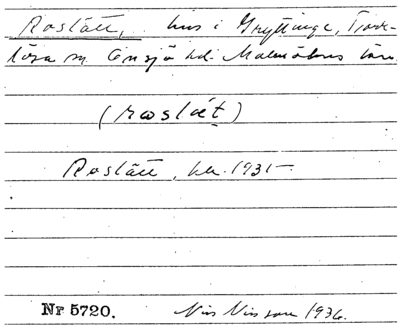 Roslätt, hus i Gryttinge, Trane-
lösa sn. Onsjö hd. Malmöhus län.
(roslæt)
Roslätt, ha. 1931-
Nr 5720. Nils Nilsson 1936.